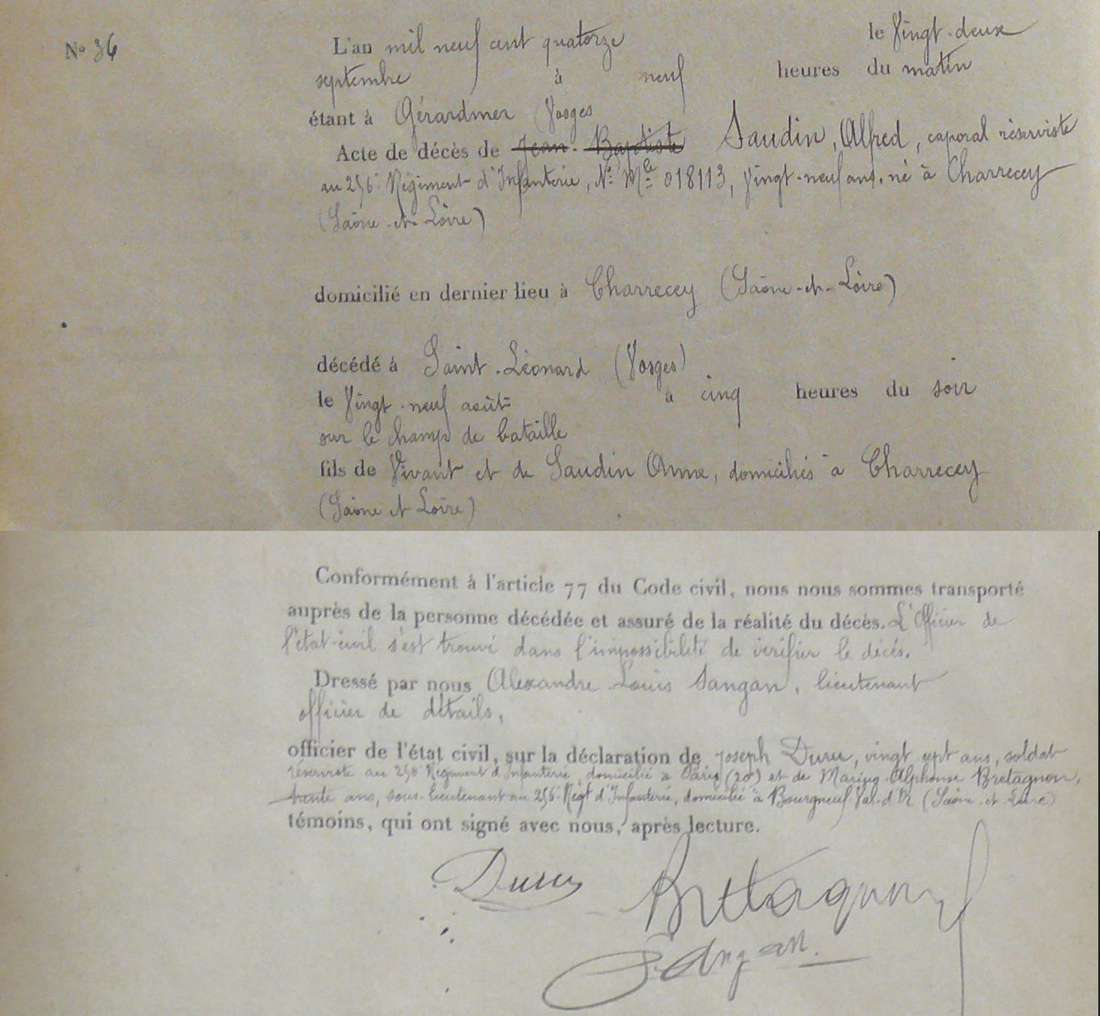 N° 36
L'an mil neuf cent quatorze le vingt-deux
septembre à neuf heures du matin
étant à Gérardmer (Vosges
Acte de décès de Jean-Baptiste Saudin, Alfred, caporal réserviste
au 256e Régiment d'Infanterie, N° Mle 018113, vingt-neuf ans, né à Charrecey
(Saône-et-Loire)
domicilié en dernier lieu à Charrecey (Saône-et-Loire)
décédé à Saint-Léonard (Vosges)
le vingt-neuf août à cinq heures du soir
sur le champ de bataille
fils de Vivant et de Saudin Anne, domiciliés à Charrecey
(Saône et Loire)
Conformément à l'article 77 du Code civil, nous nous sommes transporté
auprès de la personne décédée et assuré de la réalité du décès. L'Officier de
l'état-civil s'est trouvé dans l'impossibilité de vérifier le décés.
Dressé par nous Alexandre Louis Sangan, lieutenant
officier de détails,
officier de l'état civil, sur la déclaration de Joseph Duru, vingt sept ans, soldat
réserviste au 256 Régiment d'Infanterie, domicilié à Paris (20e) et de Marius Alphonse Bretagnon,
trente ans, sous-lieutenant au 256e Régt d'Infanterie, domicilié à Bourgneuf Val-d'Or (Saône-et-Loire)
témoins, qui ont signé avec nous, après lecture.
Duru Bretagnon
Sangan